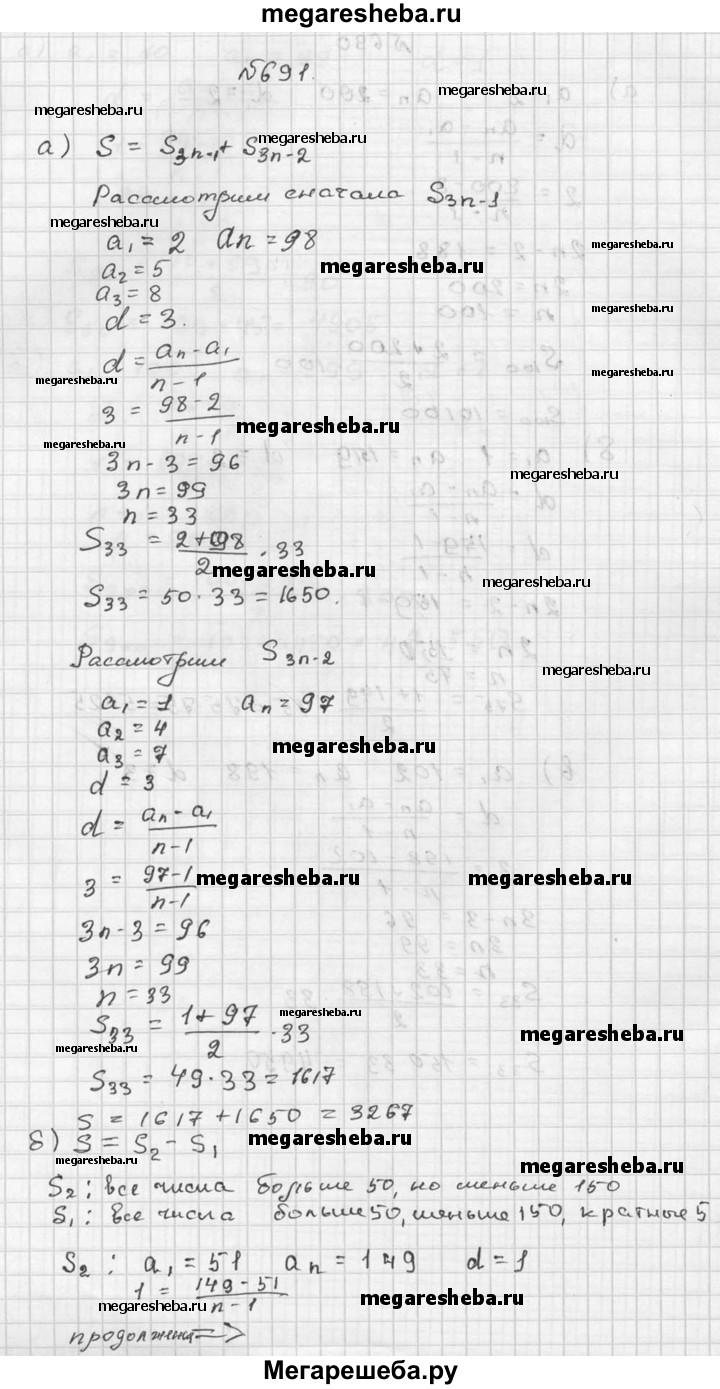 megaresheba.ru
№691.
megaresheba.ru
megaresheba.ru
а) S = S3n-1 + S3n-2
megaresheba.ru
Рассмотрим сначала S3n-1
megaresheba.ru
a1 = 2 an = 98
megaresheba.ru
a2 = 5
megaresheba.ru
a3 = 8
megaresheba.ru
d = 3.
d = (an - a1)/(n - 1)
megaresheba.ru
megaresheba.ru
3 = (98 - 2)/(n - 1)
megaresheba.ru
megaresheba.ru
3n - 3 = 96
megaresheba.ru
3n = 99
n = 33
S33 = (2 + 98)/2 · 33
megaresheba.ru
megaresheba.ru
S33 = 50 · 33 = 1650.
Рассмотрим S3n-2
megaresheba.ru
a1 = 1 an = 97
a2 = 4
megaresheba.ru
a3 = 7
d = 3
d = (an - a1)/(n - 1)
3 = (97 - 1)/(n - 1)
megaresheba.ru megaresheba.ru
3n - 3 = 96
3n = 99
n = 33
megaresheba.ru
S33 = (1 + 97)/2 · 33
megaresheba.ru
megaresheba.ru
S33 = 49 · 33 = 1617
S = 1617 + 1650 = 3267
б) S = S2 - S1
megaresheba.ru
megaresheba.ru
megaresheba.ru
S2: все числа больше 50, но меньше 150
S1: все числа больше 50, меньше 150, кратные 5
S2: a1 = 51 an = 149 d = 1
1 = (149 - 51)/(n - 1)
megaresheba.ru
megaresheba.ru
продолжение =>
Мегарешеба.ру